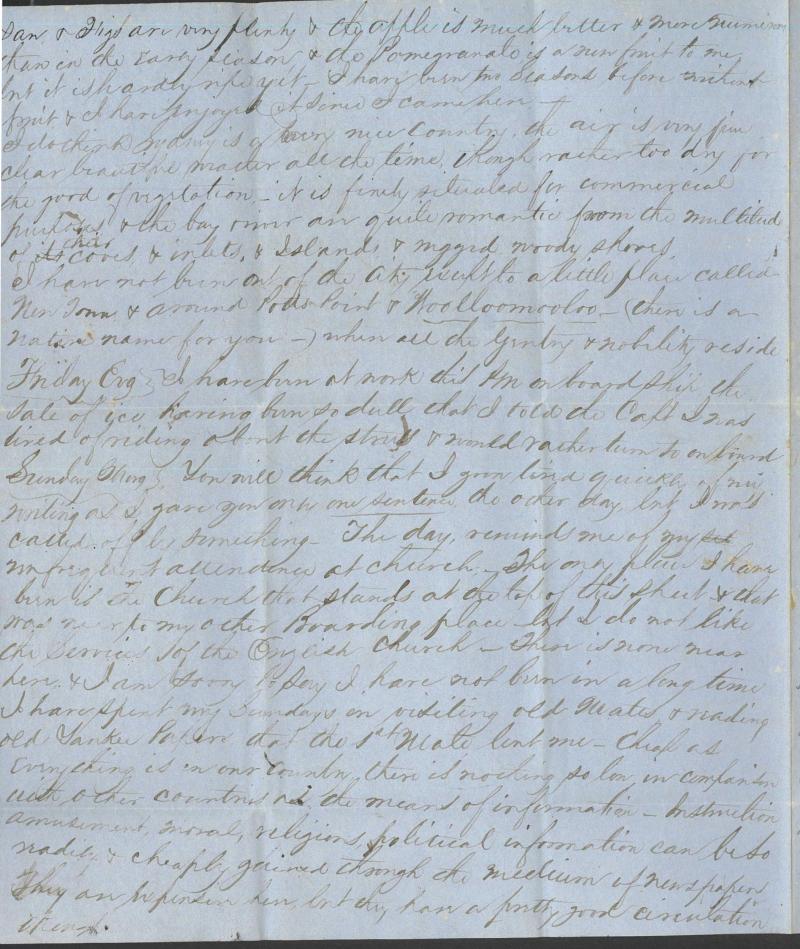 & Figs are very plenty & the apple is much better & more numerous
than in the Early Season, & the Pomegranate is a new fruit to me
but it is hardly ripe yet - I have been two Seasons before without
fruit & I have enjoyed it since I came here -
I do think Sydney is a very nice Country, the air is very fine
clear beautiful weather all the time, though rather too dry for
the good of vegitation - it is finely situated for commercial
purposes, & the bay & river are quite romantic from the multitude
of its coves, & inlets, & Islands & rugged woody shores
I have not been out of the City except to a little place called
New Town & around Potts Point & Woolloomooloo - (there is a
native name for you -) where all the Gentry & nobility reside
Friday Evg } I have been at work this Am on board ship the
Sale of ice having been so dull that I told the Capt I was
tired of riding about the streets & would rather turn to on board
Sunday Morng } You will think that I grow tired quickly of my
writing as I gave you only one sentence the other day but I was
called off by something - The day, reminds me of my
unfrequent attendance at church - The only place I have
been is the Church that stands at the top of this sheet & that
was near to my other Boarding place - but I do not like
the Services of the English Church - There is none near
here & I am sorry to say I have not been in a long time
I have spent my Sundays in visiting old Mates & reading
old Yankee Papers that the 1st Mate lent me - Cheap as
Everything is in our Country, there is nothing so low in comparison
with other countries as the means of information - Instruction
amusement, moral, religious, political information can be so
readily & cheaply gained through the medium of newspapers
They are expensive here, but they have a pretty good circulation
though